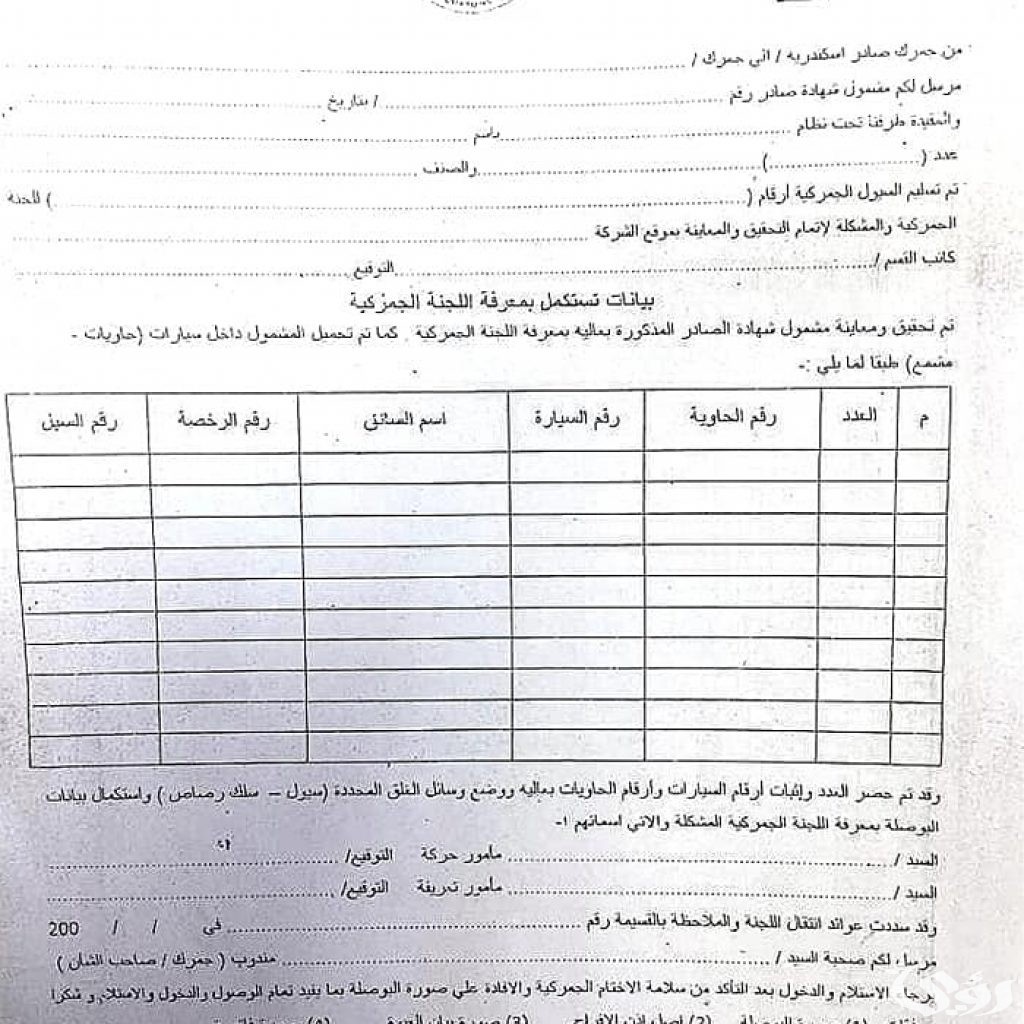 من جمرك صادر اسكندرية / الي جمرك /
مرسل لكم مشمول شهادة صادر رقم / بتاريخ
والمقيدة طرفنا تحت نظام باسم
عدد ( ) والصنف
تم تسليم السيول الجمركية أرقام ( ) للجنة
الجمركية والمشكلة لإتمام التحقيق والمعاينة بموقع الشركة
كاتب القسم / التوقيع
بيانات تستكمل بمعرفة اللجنة الجمركية
تم تحقيق ومعاينة مشمول شهادة الصادر المذكورة بعاليه بمعرفة اللجنة الجمركية . كما تم تحميل المشمول داخل سيارات (حاويات -
مشمع) طبقا لما يلي :-
م العدد رقم الحاوية رقم السيارة اسم السائق رقم الرخصة رقم السيل
وقد تم حصر العدد وإثبات أرقام السيارات وأرقام الحاويات بعاليه ووضع وسائل الغلق المحددة (سيول – سلك رصاص ) واستكمال بيانات
البوصلة بمعرفة اللجنة الجمركية المشكلة والاتي اسمائهم :-
السيد / مأمور حركة التوقيع/
السيد / مأمور تعريفة التوقيع/
وقد سددت عوائد انتقال اللجنة والملاحظة بالقسيمة رقم في / / 200
مرسل لكم صحبة السيد / مندوب ( جمرك / صاحب الشأن )
برجاء الاستلام والدخول بعد التأكد من سلامة الاختام الجمركية والافادة علي صورة البوصلة بما يفيد تمام الوصول والدخول والاستلام و شكرا